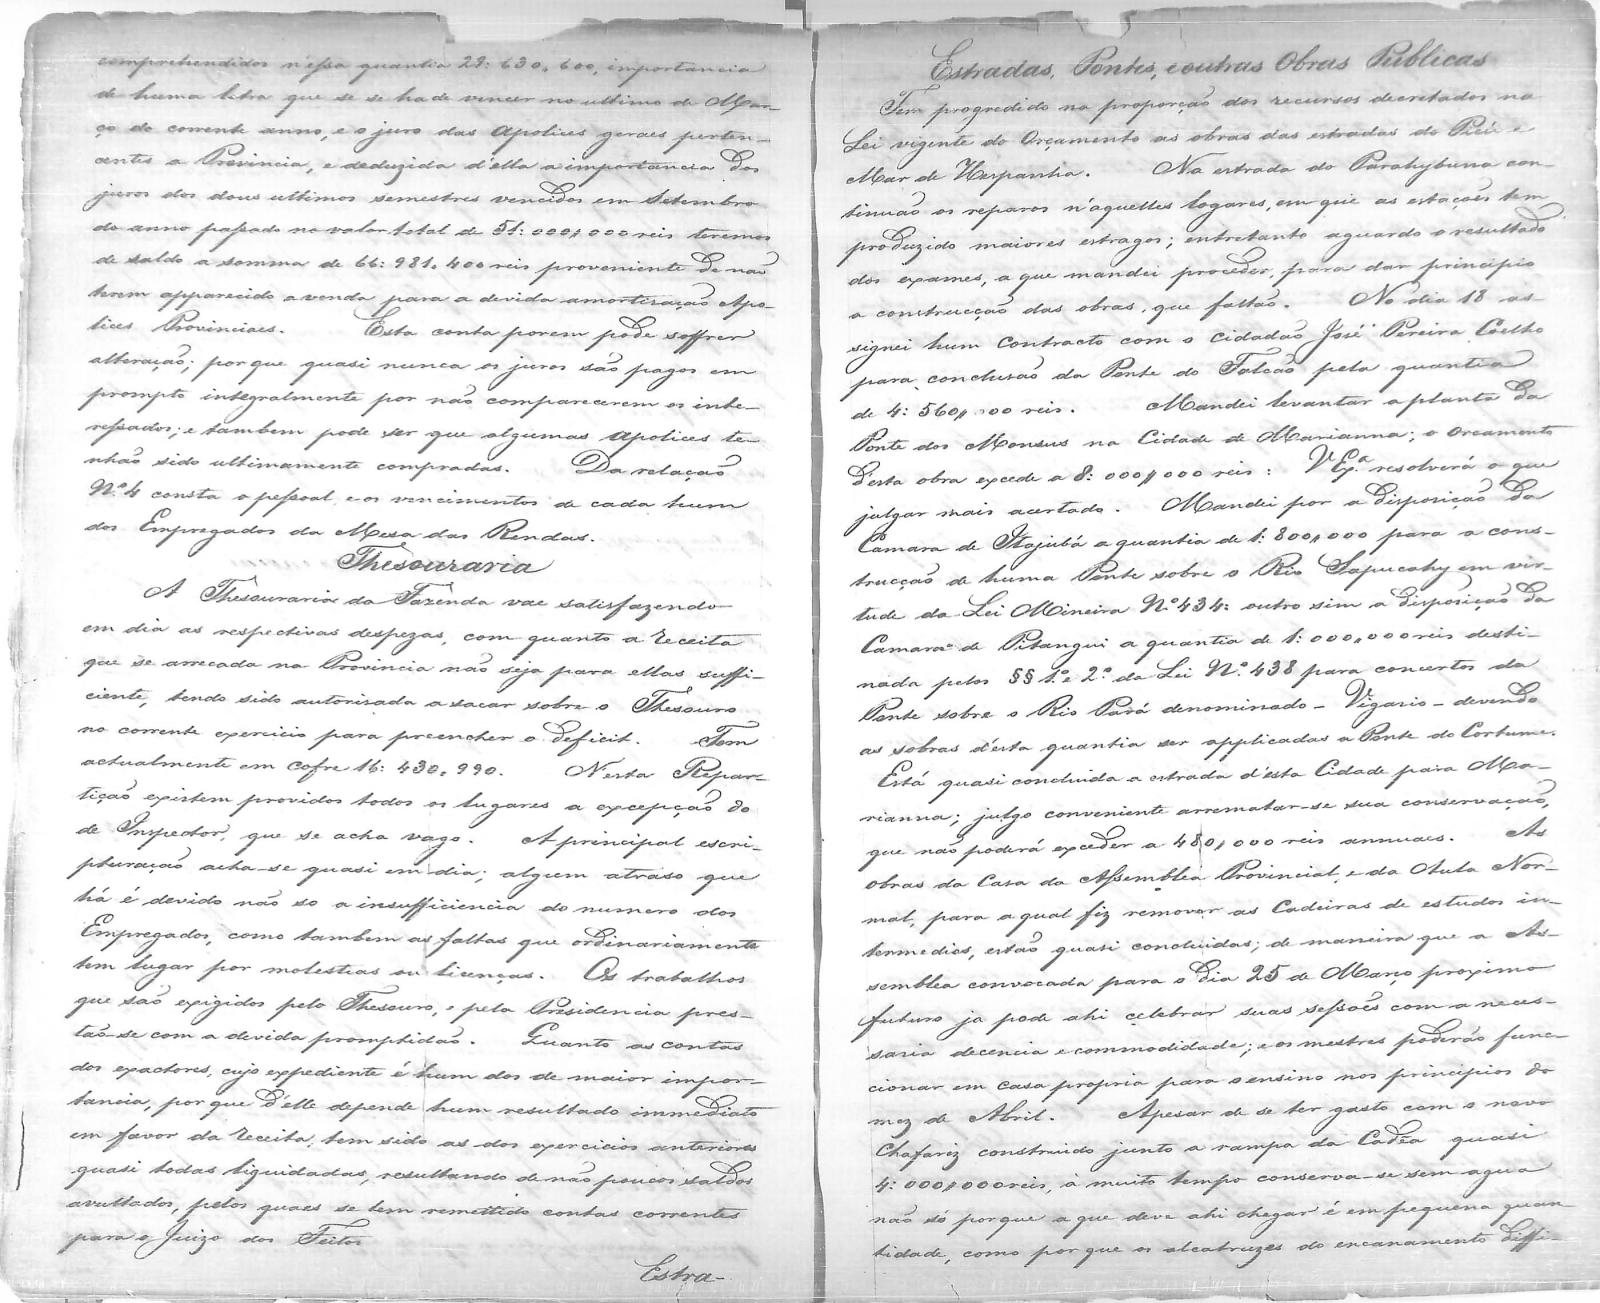 comprehendidos n'essa quantia 29: 630,600, importancia
de huma letra que se se ha de vencer no ultimo de Mar-
ço do corrente anno, e o juro das Apolices geraes perten-
centes a Provincia, e deduzida d'ella a importancia dos
juros dos dous ultimos semestres vencidos em Setembro
do anno passado no valor total de 51: 000,000 reis teremos
de saldo a somma de 66: 981,400 reis proveniente de não
terem apparecido a venda para a devida amortisação Apo-
lices Provinciaes. Esta conta porem pode soffrer
alteração; porque quasi nunca os juros são pagos em
prompto integralmente por não comparecerem os inte-
ressados; e tambem pode ser que algumas Apolices te-
nhão sido ultimamente compradas. Da relação
N.º 4 consta o pessoal e os vencimentos de cada hum
dos Empregados da Mesa das Rendas.
Thesouraria
A Thesouraria da Fazenda vae satisfazendo
em dia as respectivas despezas, com quanto a receita
que se arrecada na Provincia não seja para ellas suffi-
ciente, tendo sido autorisada a sacar sobre o Thesouro
no corrente exercicio para preencher o deficit. Tem
actualmente em cofre 16: 430,990. Nesta Repar-
tição existem providos todos os lugares a excepção do
de Inspector, que se acha vago. A principal escri-
pturação acha-se quasi em dia; algum atraso que
há é devido não so a insufficiencia do numero dos
Empregados, como tambem as faltas que ordinariamente
tem lugar por molestias ou licenças. Os trabalhos
que são exigidos pelo Thesouro, e pela Presidencia pres-
tão-se com a devida promptidão. Quanto as contas
dos exactores, cujo expediente é hum dos de maior impor-
tancia, porque d'elle depende hum resultado immediato
em favor da receita, tem sido as dos exercicios anteriores
quasi todas liquidadas, resultando de não poucos saldos
avultados, pelos quaes se tem remettido contas correntes
para o Juizo dos Feitos
Estra-
Estradas, Pontes, e outras Obras Publicas
Tem progredido na proporção dos recursos decretados na
Lei vigente do Orçamento as obras das estradas do Picú e
Mar de Hespanha. Na estrada do Parahybuna con-
tinuão os reparos n'aquelles logares, em que as estações tem
produzido maiores estragos; entretanto aguardo o resultado
dos exames, a que mandei proceder, para dar principio
a construcção das obras, que faltão. No dia 18 as-
signei hum Contracto com o Cidadão José Pereira Coelho
para conclusão da Ponte do Falcão pela quantia
de 4: 560,000 reis. Mandei levantar a planta da
Ponte dos Monsus na Cidade de Marianna; o Orcamento
d'esta obra excede a 8: 000,000 reis: V Ex.ª resolverá o que
julgar mais acertado. Mandei por a disposição da
Camara de Itajubá a quantia de 1: 800,000 para a cons-
trucção de huma Ponte sobre o Rio Sapucahy em vir-
tude da Lei Mineira N.º 434: outro sim a disposição da
Camara de Pitangui a quantia de 1: 000,000 reis desti-
nada pelos §§ 1.º e 2.º da Lei N.º 438 para concertos da
Ponte sobre o Rio Pará denominado - Vigario - devendo
as sobras d'esta quantia ser applicadas a Ponte do Cortume.
Está quasi concluida a estrada d'esta Cidade para Ma-
rianna; julgo conveniente arrematar-se sua conservação,
que não poderá exceder a 480,000 reis annuaes. As
obras da Casa da Assemblea Provincial, e da Aula Nor-
mal, para a qual fiz remover as Cadeiras de estudos in-
termedios, estão quasi concluidas; de maneira que a As-
semblea convocada para o dia 25 de Março proximo
futuro ja pode ahi celebrar suas sessões com a neces-
saria decencia e commodidade; e os mestres poderão func-
cionar em casa propria para o ensino nos principios do
mez de Abril. Apesar de se ter gasto com o novo
Chafariz construido junto a rampa da Cadêa quasi
4: 000,000 reis, a muito tempo conserva-se sem agua
não só porque a que deve ahi chegar é em pequena quan-
tidade, como porque os alcatruzes do encanamento diffi-